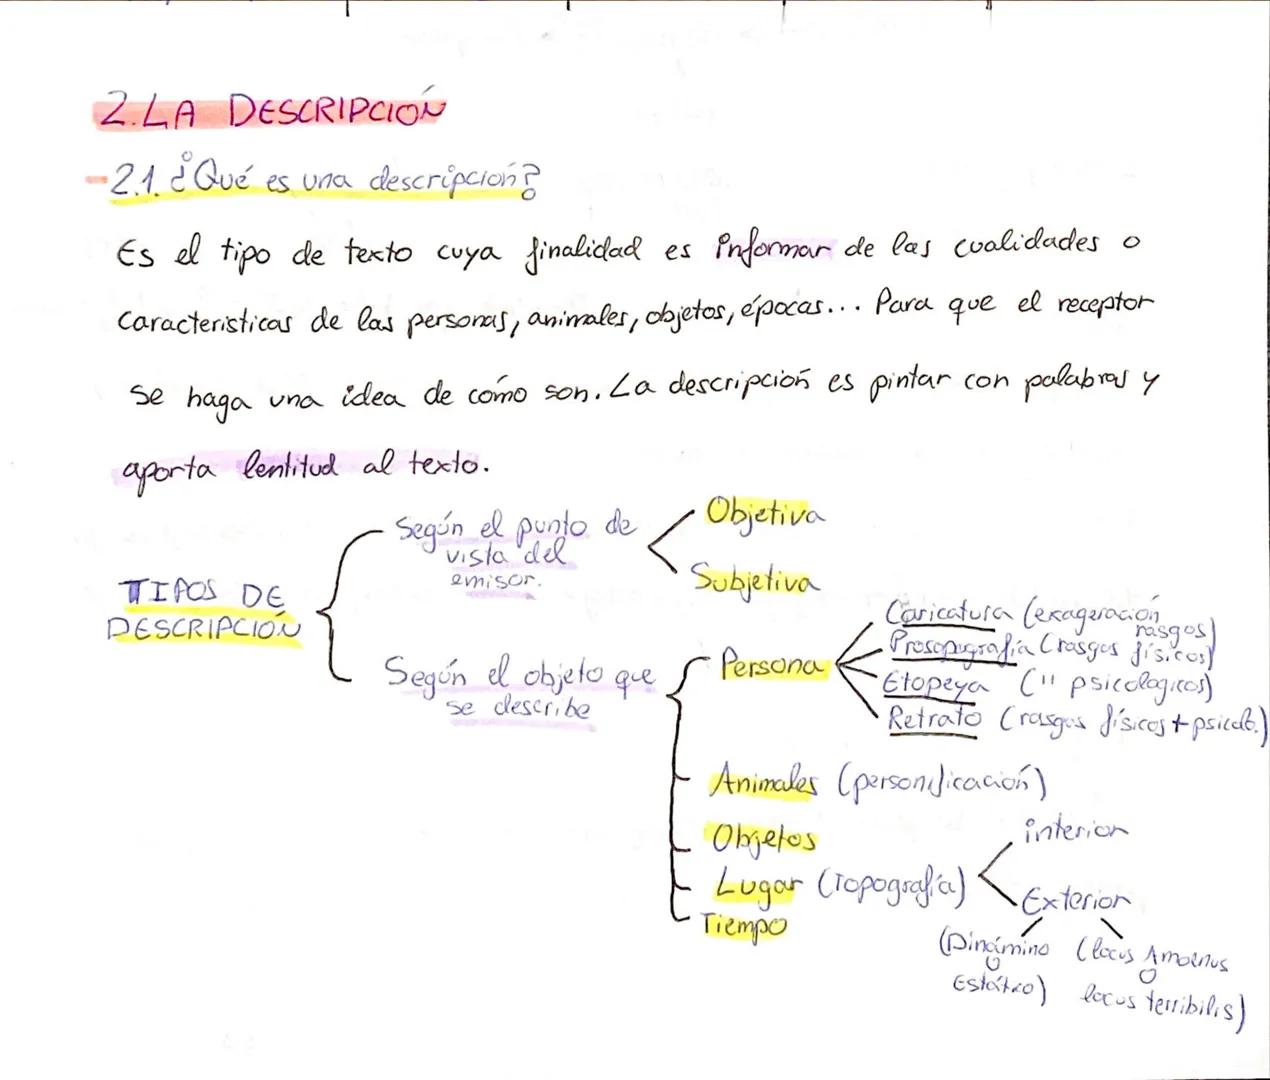 2. LA DESCRIPCIÓN
- 2.1. ¿Qué es una descripción?
Es el tipo de texto cuya finalidad es informar de las cualidades o
características de las personas, animales, objetos, épocas... Para que el receptor
se haga una idea de cómo son. La descripción es pintar con palabras y
aporta lentitud al texto.
TIPOS DE
DESCRIPCIÓN
Según el punto de
vista del
emisor.
Objetiva
Subjetiva
Según el objeto que
se describe
Persona
Caricatura (exageración
rasgos)
Prosopografía (rasgos físicos)
Etopeya (" psicologicos)
Retrato (rasgos físicos + psicoló.)
Animales (personificación)
Objetos
Lugar (Topografía)
interior
Exterior
(Dinámino
o
Estático)
(locus Amoenus
o
locus terribilis)
Tiempo